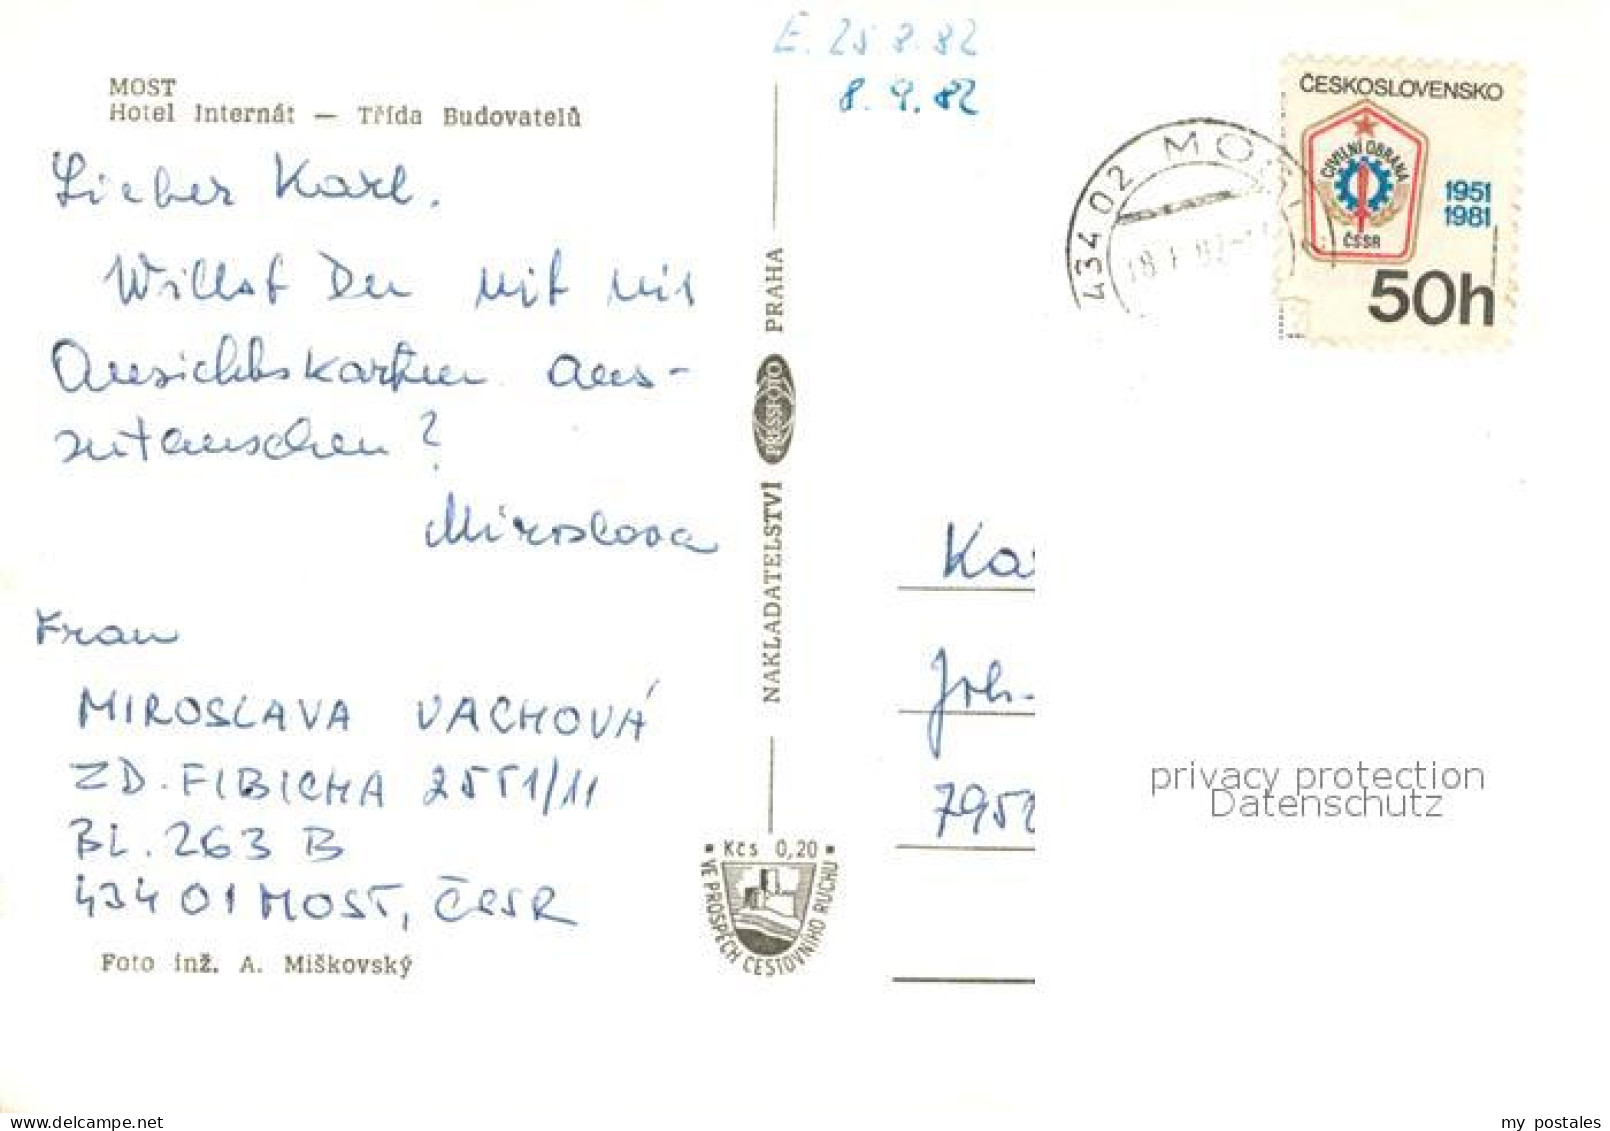 E. 25 8.82
8.9.82
MOST
Hotel Internát — Třída Budovatelů
Lieber Karl.
Willst Du mit mir
Ansichtskarten aus-
zutauschen?
Miroslava
Frau
MIROSLAVA VACHOVÁ
ZD. FIBICHA 2551/11
BL. 263 B
434 01 MOST, ČSSR
Foto inž. A. Miškovský
NAKLADATELSTVÍ PRESSFOTO PRAHA
Kčs 0,20
VE PROSPĚCH CESTOVNÍHO RUCHU
434 02 MOST
ČESKOSLOVENSKO
CIVILNÍ OBRANA
ČSSR
1951
1981
50h
Ka
Joh-
795
privacy protection
Datenschutz
delcampe.net
my_postales